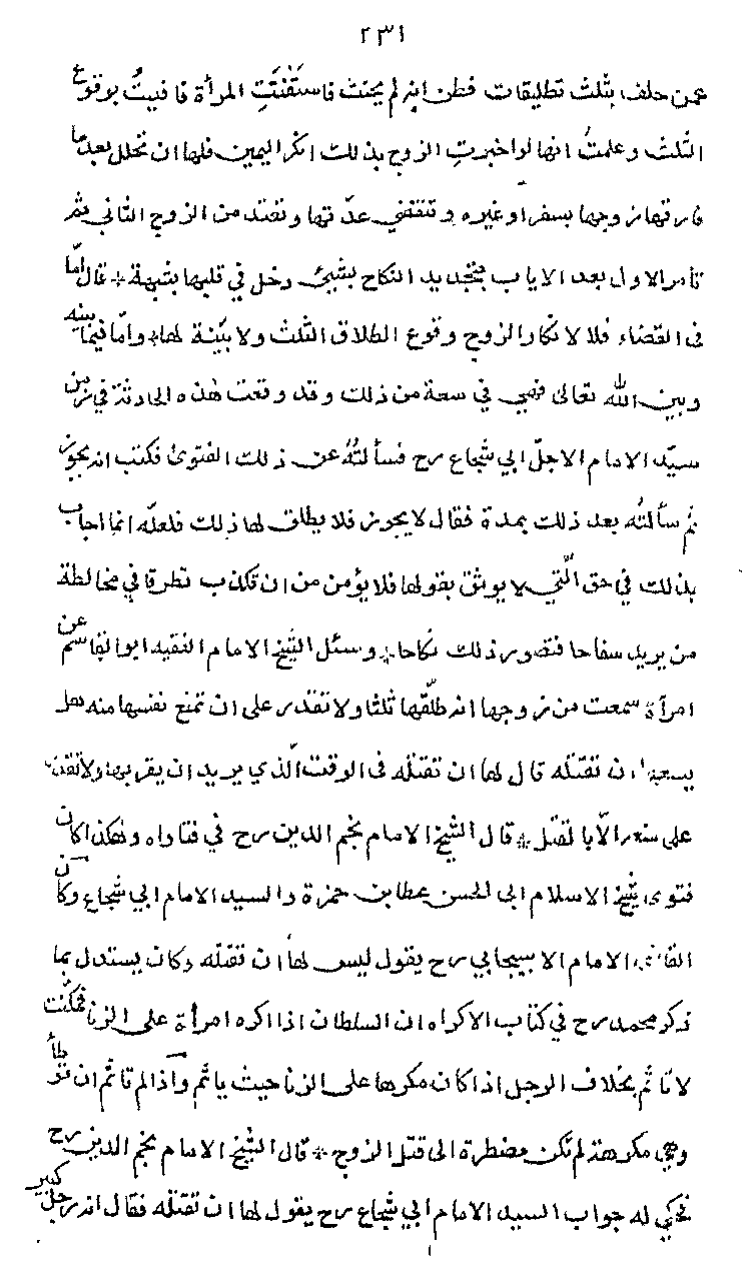 ٢٣١
عمن حلف بثلث تطليقات فظن انه لم يحنث فاستفتت المرأة فافتيت بوقوع
الثلث وعلمت انها لو اخبرت الزوج بذلك انكر اليمين فلها ان تحلل بعد ما
فارقها زوجها بسفر او غيره وتنقضي عدتها وتعتد من الزوج الثاني ثم
تأمر الاول بعد الاياب بتجديد النكاح بشيئ دخل في قلبها بشبهة * قال اما
فى القضاء فلا لانكار الزوج وقوع الطلاق الثلث ولا بيّنة لها * وامّا فيما بينه
وبين الله تعالى فهي في سعة من ذلك وقد وقعت هذه الحادثة في زمن
سيّد الامام الاجلّ ابي شجاع رح فسألتُهُ عن ذلك الفتوى فكتب انه يجوز
ثم سألتُه بعد ذلك بمدة فقال لا يجوز فلا يطلق لها ذلك فلعلّه انما اجاب
بذلك في حق الّتي لا يوثق بقولها فلا يؤمن من ان تكذب تطرقا في مخالطة
من يريد سفاحا فتصور ذلك نكاحا * وسئل الشيخ الامام الفقيه ابو القاسم عن
امرأة سمعت من زوجها انه طلّقها ثلثا ولا تقدر على ان تمنع نفسها منه هل
يسعها ان تقتله قال لها ان تقتله فى الوقت الّذي يريد ان يقربها ولا تقدر
على منعه الّا بالقتل * قال الشيخ الامام نجم الدين رح في فتاواه وهكذا كان
فتوى شيخ الاسلام ابى الحسن عطا بن حمزة والسيد الامام ابي شجاع وكان
القاضى الامام الاسبيجابي رح يقول ليس لها ان تقتله وكان يستدل بما
ذكر محمد رح في كتاب الاكراه ان السلطان اذا اكره امرأة على الزنا فمكّنت
لا تأثم بخلاف الرجل اذا كان مكرها على الزنا حيث يأثم واذا لم تأثم ان توطأ
وهي مكرهة لم تكن مضطرة الى قتل الزوج * قال الشيخ الامام نجم الدين رح
فحكي له جواب السيد الامام ابي شجاع رح يقول لها ان تقتله فقال انه رجل كبير